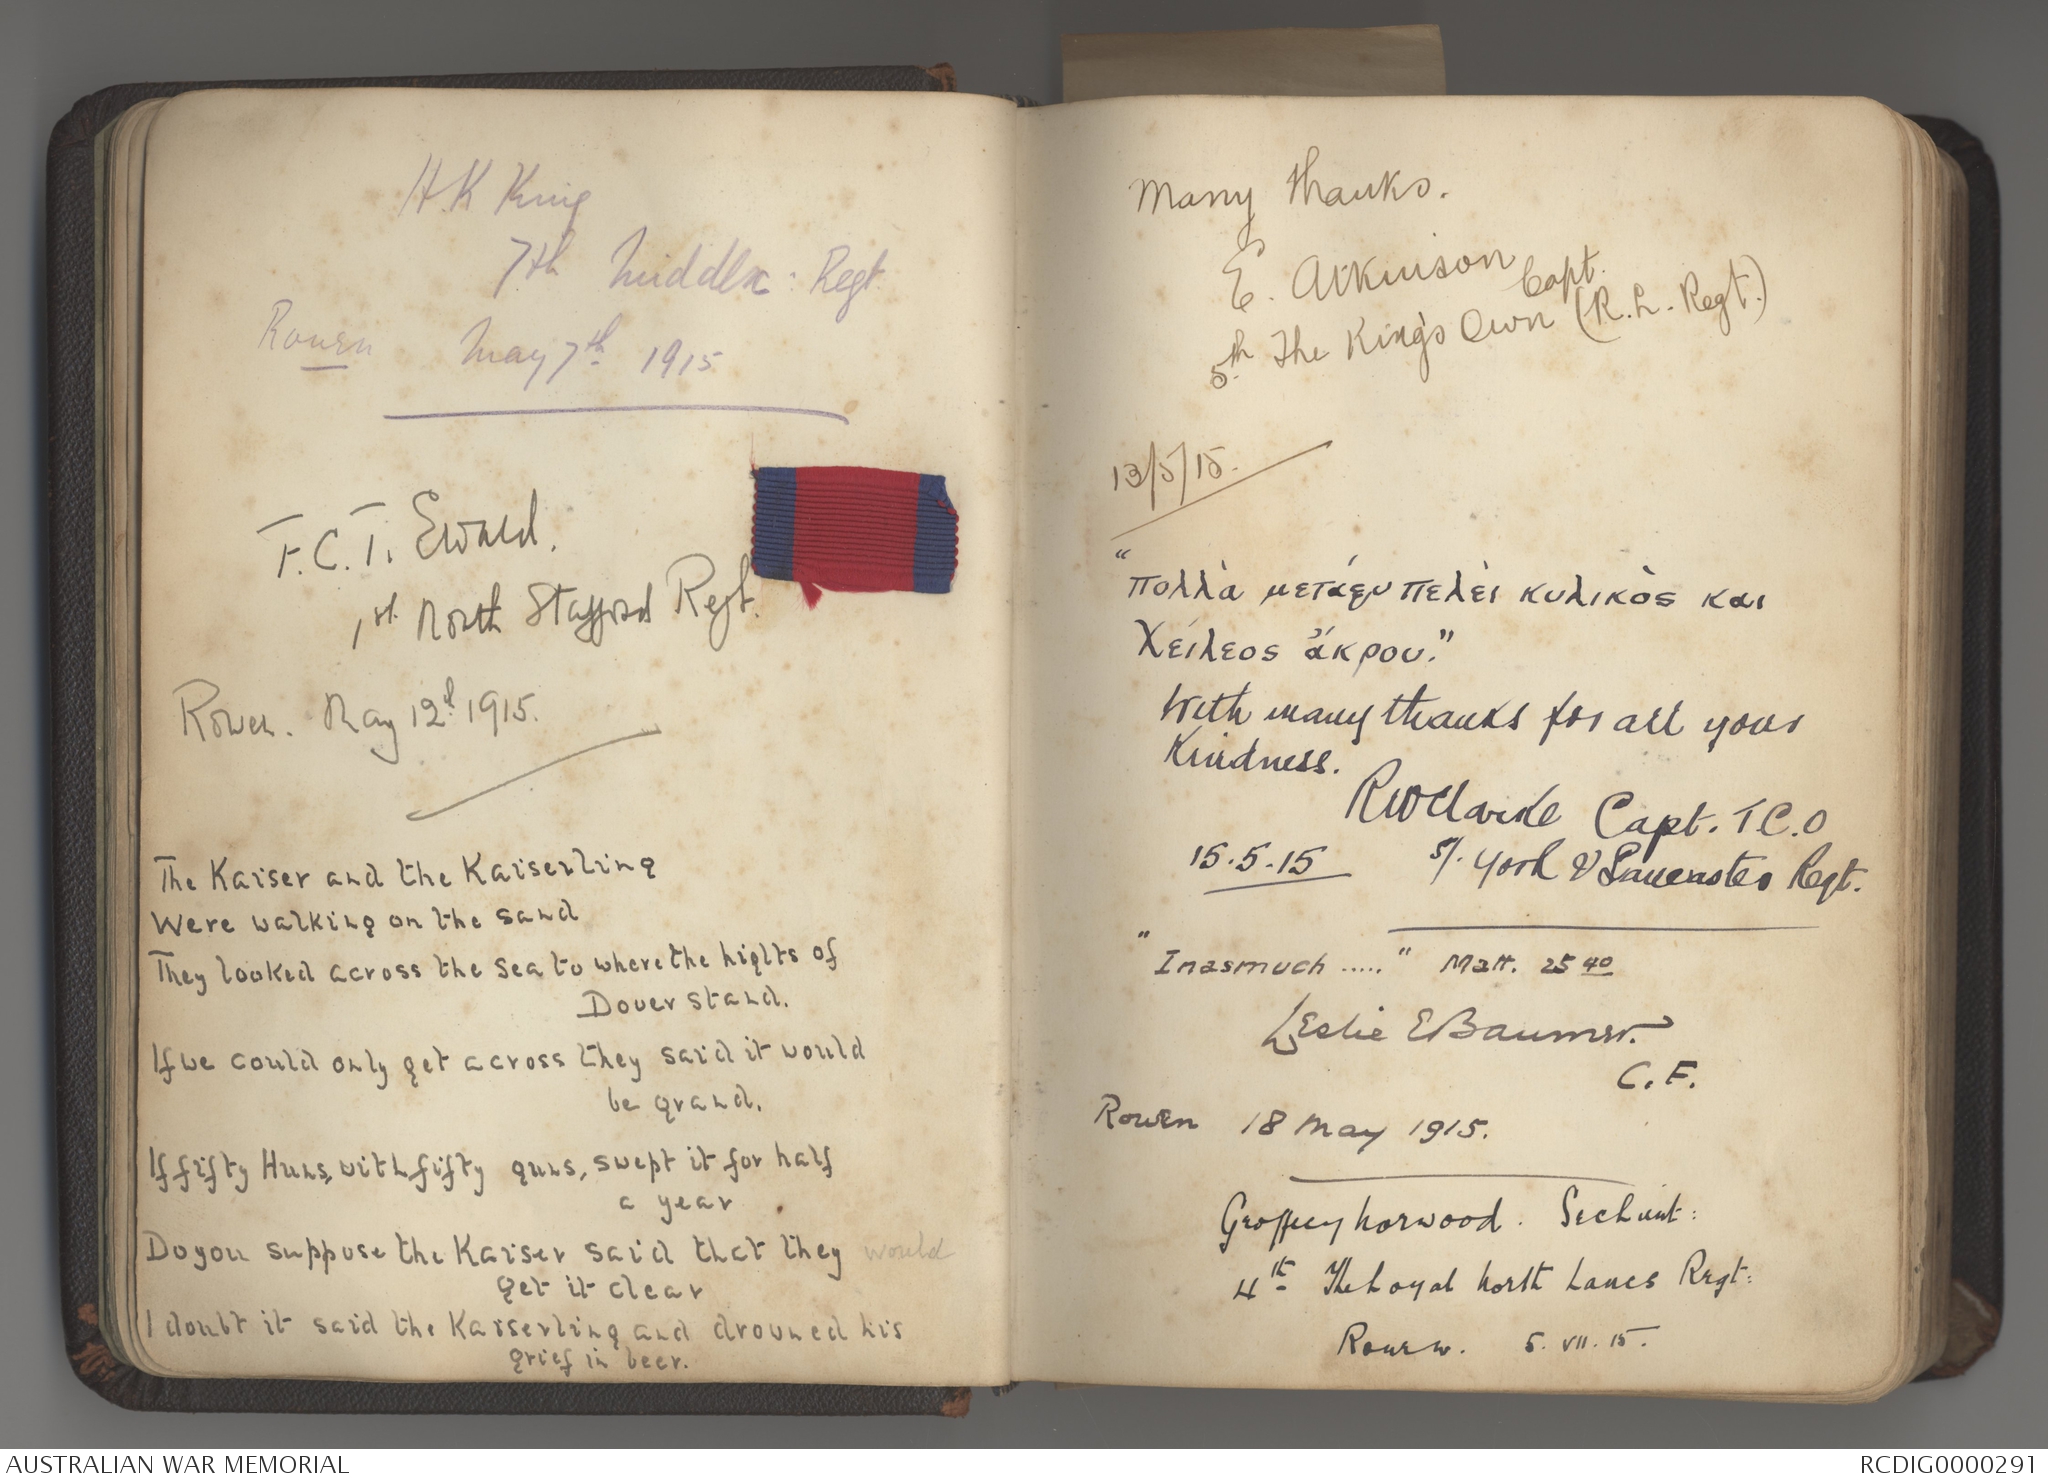 H.K King
7th Middlx: Regt
Rouen May 7th 1915
F.C.T. Ewald.
1st North Stafford Regt.
Rouen. May 12th 1915.
The Kaiser and the Kaiserling
Were walking on the sand
They looked across the sea to where the highlts of
Dover stand.
If we could only get across they said it would
be grand.
If fifty Huns, with fifty guns, swept it for half
a year
Do you suppose the Kaiser said that they would
get it clear
I doubt it said the Kaiserling and drowned his
grief in beer.
Many thanks.
E. Atkinson Capt.
5th The King's Own (R.L. Regt.)
13/5/15.
"πολλὰ μετάξυ πελέι κυλικὸς και
Χείλεος ἄκρου."
With many thanks for all your
kindness.
RWClarke Capt. T C.O
15.5.15 5/. York & Lancaster Regt.
"Inasmuch ....." Matt. 25 40
Leslie E Baumer.
C. F.
Rouen 18 May 1915.
Geoffrey Norwood. Sec Lieut:
4th The Loyal North Lancs Regt:
Rouen. 5. VII. 15.
AUSTRALIAN WAR MEMORIAL
RCDIG0000291